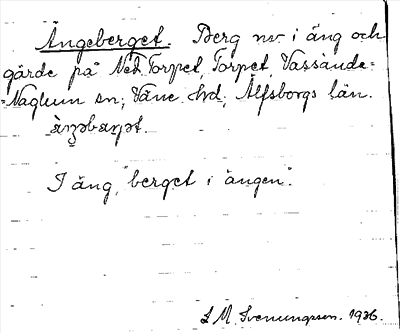 Ängeberget. Berg nv i äng och
gärde på Ned. Torpet, Torpet, Vassända-
-Naglum sn; Väne hd; Älfsborgs län.
I äng, "berget i ängen".
S M Svenungsson. 1936.